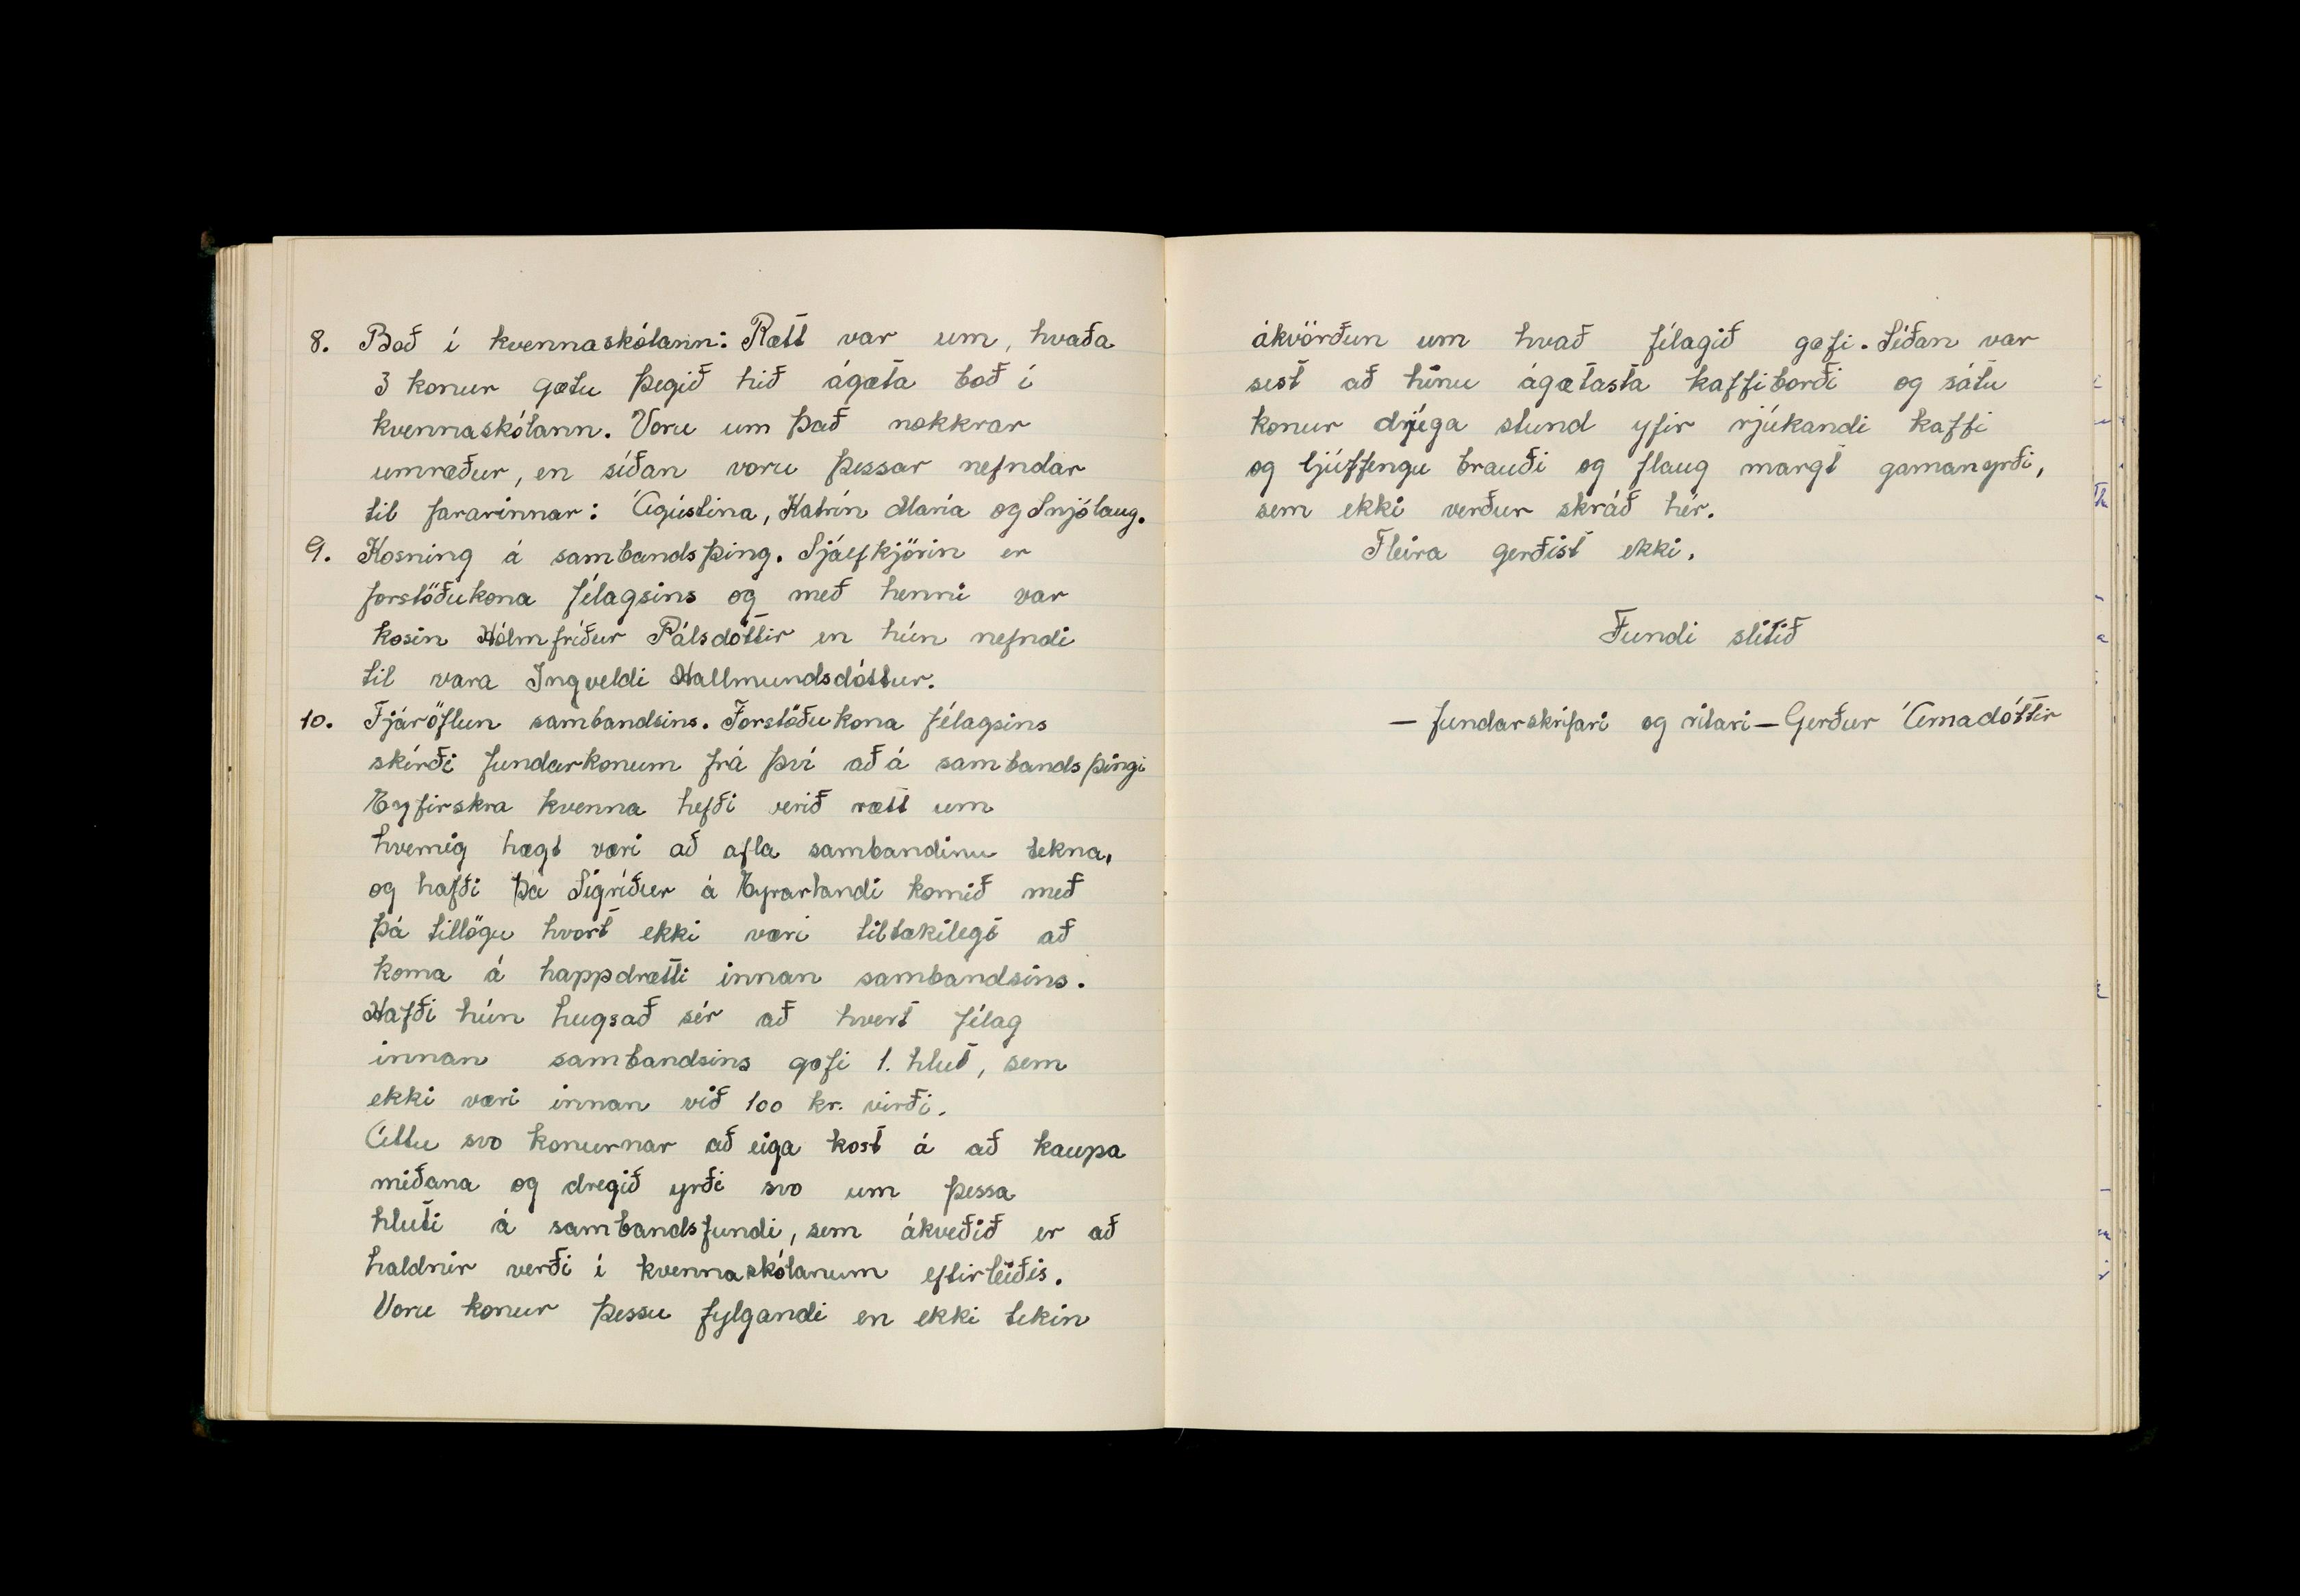 8. Boð í kvennaskólann: Rætt var um, hvaða
3 konur gætu þegið hið ágæta boð í
kvennaskólann. Voru um það nokkrar
umræður, en síðan voru þessar nefndar
til fararinnar: Ágústina, Katrín María og Snjólaug.
9. Kosning á sambandsþing. Sjálfkjörin er
forstöðukona félagsins og með henni var
kosin Hólmfríður Pálsdóttir en hún nefndi
til vara Ingveldi Hallmundsdóttur.
10. Fjáröflun sambandsins. Forstöðukona félagsins
skírði fundarkonum frá því að á sambandsþingi
Eyfirskra kvenna hefði verið rætt um
hvernig hægt væri að afla sambandinu tekna,
og hafði þá Sigríður á Eyrarlandi komið með
þá tillögu hvort ekki væri tiltækilegt að
koma á happdrætti innan sambandsins.
Hafði hún hugsað sér að hvert félag
innan sambandsins gæfi 1. hlut, sem
ekki væri innan við 100 kr. virði.
Ættu svo konurnar að eiga kost á að kaupa
miðana og dregið yrði svo um þessa
hluti á sambandsfundi, sem ákveðið er að
haldnir verði í kvennaskólanum eftirleiðis.
Voru konur þessu fylgjandi en ekki tekin
ákvörðun um hvað félagið gæfi. Síðan var
sest að hinu ágætasta kaffiborði og sátu
konur drjúga stund yfir rjúkandi kaffi
og ljúffengu brauði og flaug margt gamanyrði,
sem ekki verður skráð hér.
Fleira gerðist ekki.
Fundi slitið
— fundarskrifari og ritari — Gerður Árnadóttir